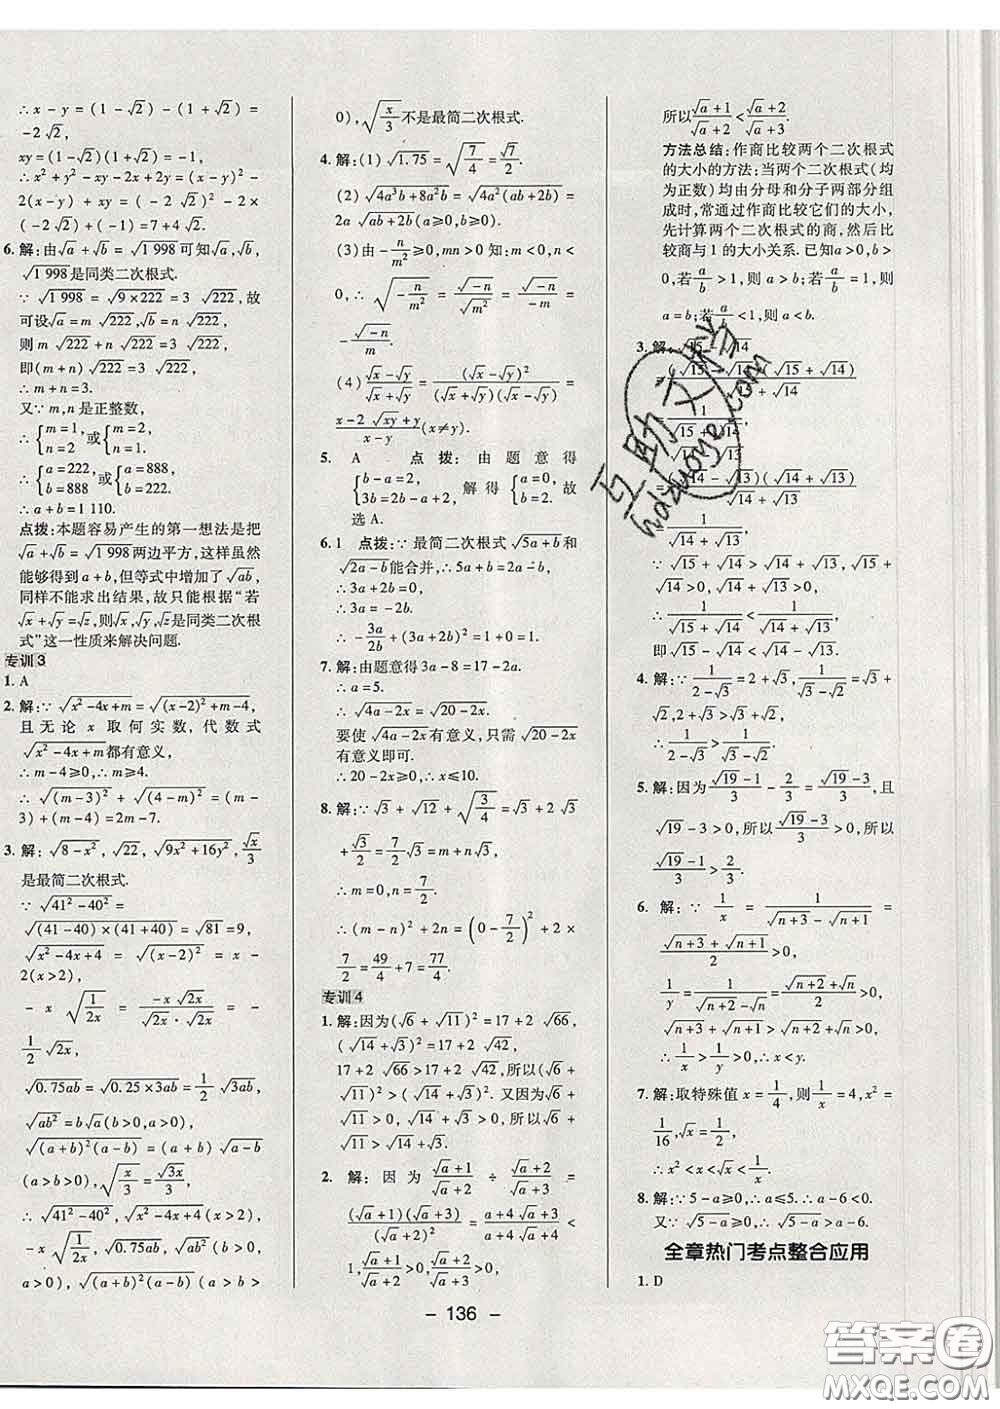 ∴x－y＝(1－√2)－(1＋√2)＝
－2√2,
xy＝(1－√2)(1＋√2)＝－1,
∴x²＋y²－xy－2x＋2y＝(x－y)²－
2(x－y)＋xy＝(－2√2)²－2×
(－2√2)＋(－1)＝7＋4√2.
6. 解:由√a＋√b＝√1 998可知√a,√b,
√1 998是同类二次根式.
∵√1 998＝√(9×222)＝3√222,故
可设√a＝m√222,√b＝n√222,
则m√222＋n√222＝3√222,
即(m＋n)√222＝3√222.
∴m＋n＝3.
又∵m,n是正整数,
∴{m＝1, n＝2 或{m＝2, n＝1.
∴{a＝222, b＝888 或{a＝888, b＝222.
∴a＋b＝1 110.
点拨:本题容易产生的第一想法是把
√a＋√b＝√1 998两边平方,这样虽然
能够得到a＋b,但等式中增加了√ab,
同样不能求出结果,故只能根据“若
√x＋√y＝√z,则√x,√y,√z是同类二次根
式”这一性质来解决问题.
专训3
1. A
2. 解:∵√(x²－4x＋m)＝√((x－2)²＋m－4),
且无论x取何实数,代数式
√(x²－4x＋m)都有意义,
∴m－4≥0,∴m≥4.
∴√((m－3)²)＋√((4－m)²)＝(m－
3)＋(m－4)＝2m－7.
3. 解:√(8－x²),√22,√(9x²＋16y²),√x/3
是最简二次根式.
∵√(41²－40²)＝
√((41－40)×(41＋40))＝√81＝9,
√(x²－4x＋4)＝√((x－2)²)＝x－
2(x＞2),
－x√(1/2x)＝(－x√2x)/(√2x·√2x)＝－
1/2√2x,
√0.75ab＝√(0.25×3ab)＝1/2√3ab,
√ab²＝b√a(b＞0,a＞0),
√((a＋b)²(a－b))＝(a＋b)√(a－b)
(a＞b＞0),√(x/3)＝√3x/3(x＞0),
∴√(41²－40²),√(x²－4x＋4)(x＞2),
－x√(1/2x),√0.75ab,√ab²(b＞0,
a＞0),√((a＋b)²(a－b))(a＞b＞
0),√(x/3)不是最简二次根式.
4. 解:(1)√1.75＝√(7/4)＝√7/2.
(2)√(4a³b＋8a²b)＝√(4a²(ab＋2b))＝
2a√(ab＋2b)(a≥0,b≥0).
(3)由－n/m²≥0,mn＞0得n＜0,m＜
0,∴√(－n/m²)＝√(－n)/√m²＝√(－n)/(－m)＝
－√(－n)/m.
(4)(√x－√y)/(√x＋√y)＝(√x－√y)²/((√x＋√y)(√x－√y))＝
(x－2√xy＋y)/(x－y)(x≠y).
5. A 点拨:由题意得
{b－a＝2, 3b＝2a－b＋2, 解得{a＝0, b＝2. 故
选A.
6. 1 点拨:∵最简二次根式√(5a＋b)和
√(2a－b)能合并,∴5a＋b＝2a－b,
∴3a＋2b＝0,
∴3a＝－2b.
∴－3a/2b＋(3a＋2b)²＝1＋0＝1.
7. 解:由题意得3a－8＝17－2a.
∴a＝5.
∴√(4a－2x)＝√(20－2x).
要使√(4a－2x)有意义,只需√(20－2x)
有意义即可.
∴20－2x≥0.∴x≤10.
8. 解:∵√3＋√12＋√(3/4)＝√3＋2√3
＋√3/2＝7/2√3＝m＋n√3,
∴m＝0,n＝7/2.
∴(m－n)²＋2n＝(0－7/2)²＋2×
7/2＝49/4＋7＝77/4.
专训4
1. 解:因为(√6＋√11)²＝17＋2√66,
(√14＋√3)²＝17＋2√42,
17＋2√66＞17＋2√42,所以(√6＋
√11)²＞(√14＋√3)².又因为√6＋
√11＞0,√14＋√3＞0,所以√6＋
√11＞√14＋√3.
2. 解:因为(√a＋1)/(√a＋2)÷(√a＋2)/(√a＋3)＝
(√a＋1)(√a＋3)/(√a＋2)²＝(a＋4√a＋3)/(a＋4√a＋4)＜
1,(√a＋1)/(√a＋2)＞0,(√a＋2)/(√a＋3)＞0,
所以(√a＋1)/(√a＋2)＜(√a＋2)/(√a＋3).
方法总结:作商比较两个二次根式
的大小的方法:当两个二次根式(均
为正数)均由分母和分子两部分组
成时,常通过作商比较它们的大小,
先计算两个二次根式的商,然后比
较商与1的大小关系.已知a＞0,b＞
0,若a/b＞1,则a＞b;若a/b＝1,则
a＝b;若a/b＜1,则a＜b.
3. 解:√15－√14
＝(√15－√14)(√15＋√14)/(√15＋√14)
＝1/(√15＋√14),√14－√13
＝(√14－√13)(√14＋√13)/(√14＋√13)
＝1/(√14＋√13).
∵√15＞√14＞√13,∴√15＋√14＞
√14＋√13＞0.
∴1/(√15＋√14)＜1/(√14＋√13),
即√15－√14＜√14－√13.
4. 解:∵1/(2－√3)＝2＋√3,1/(√3－√2)＝√3＋
√2,2＋√3＞√3＋√2,
∴1/(2－√3)＞1/(√3－√2).
5. 解:因为(√19－1)/3－2/3＝(√19－3)/3,且
√19－3＞0,所以(√19－3)/3＞0,所以
(√19－1)/3＞2/3.
6. 解:∵1/x＝1/(√(n＋3)－√(n＋1))＝
(√(n＋3)＋√(n＋1))/2＞0,
1/y＝1/(√(n＋2)－√n)＝(√(n＋2)＋√n)/2＞0,
√(n＋3)＋√(n＋1)＞√(n＋2)＋√n＞0,
∴1/x＞1/y＞0.∴x＜y.
7. 解:取特殊值x＝1/4,则1/x＝4,x²＝
1/16,√x＝1/2,
∴x²＜x＜√x＜1/x.
8. 解:∵5－a≥0,∴a≤5,∴a－6＜0.
又∵√(5－a)≥0,∴√(5－a)＞a－6.
全章热门考点整合应用
1. D
－ 136 －
互助文件
hdzuoye.com
答案卷
MXQE.COM